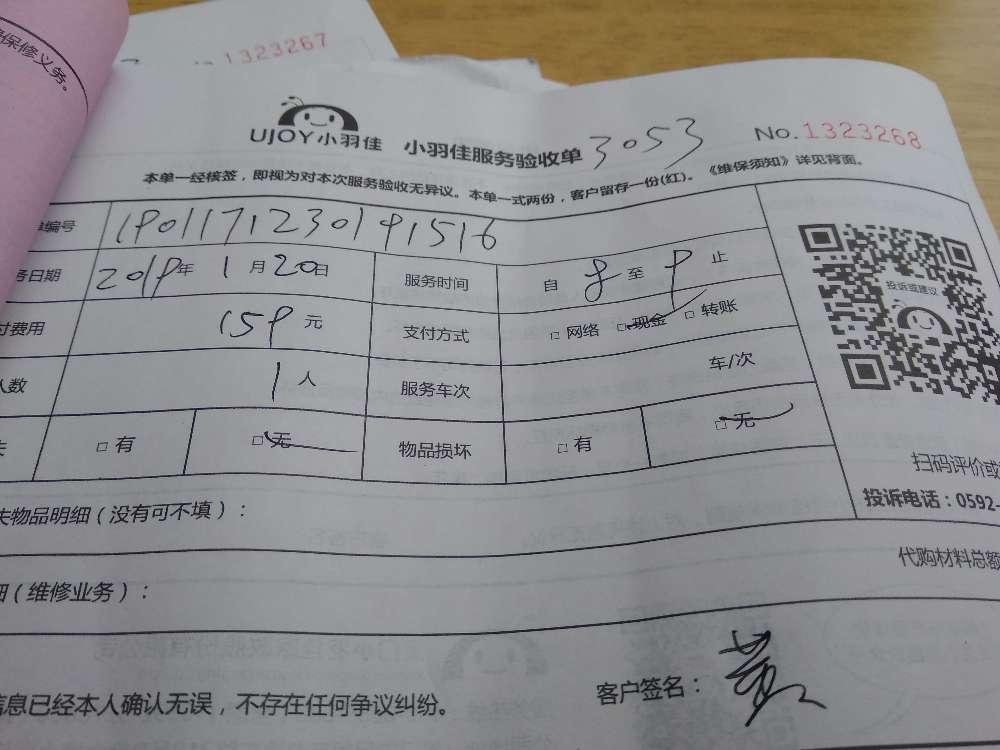 保修义务。
1323267
UJOY小羽佳 小羽佳服务验收单 3053 No.1323268
本单一经核签，即视为对本次服务验收无异议。本单一式两份，客户留存一份(红)。《维保须知》详见背面。
编号 1901171230191516
务日期 2019年1月20日 服务时间 自 8 至 9 止
付费用 159元 支付方式 □网络 □现金 □转账
人数 1人 服务车次 车/次
失 □有 □无 物品损坏 □有 □无
投诉或建议
扫码评价或
投诉电话：0592-
失物品明细（没有可不填）：
代购材料总额
细（维修业务）：
信息已经本人确认无误，不存在任何争议纠纷。
客户签名：黄